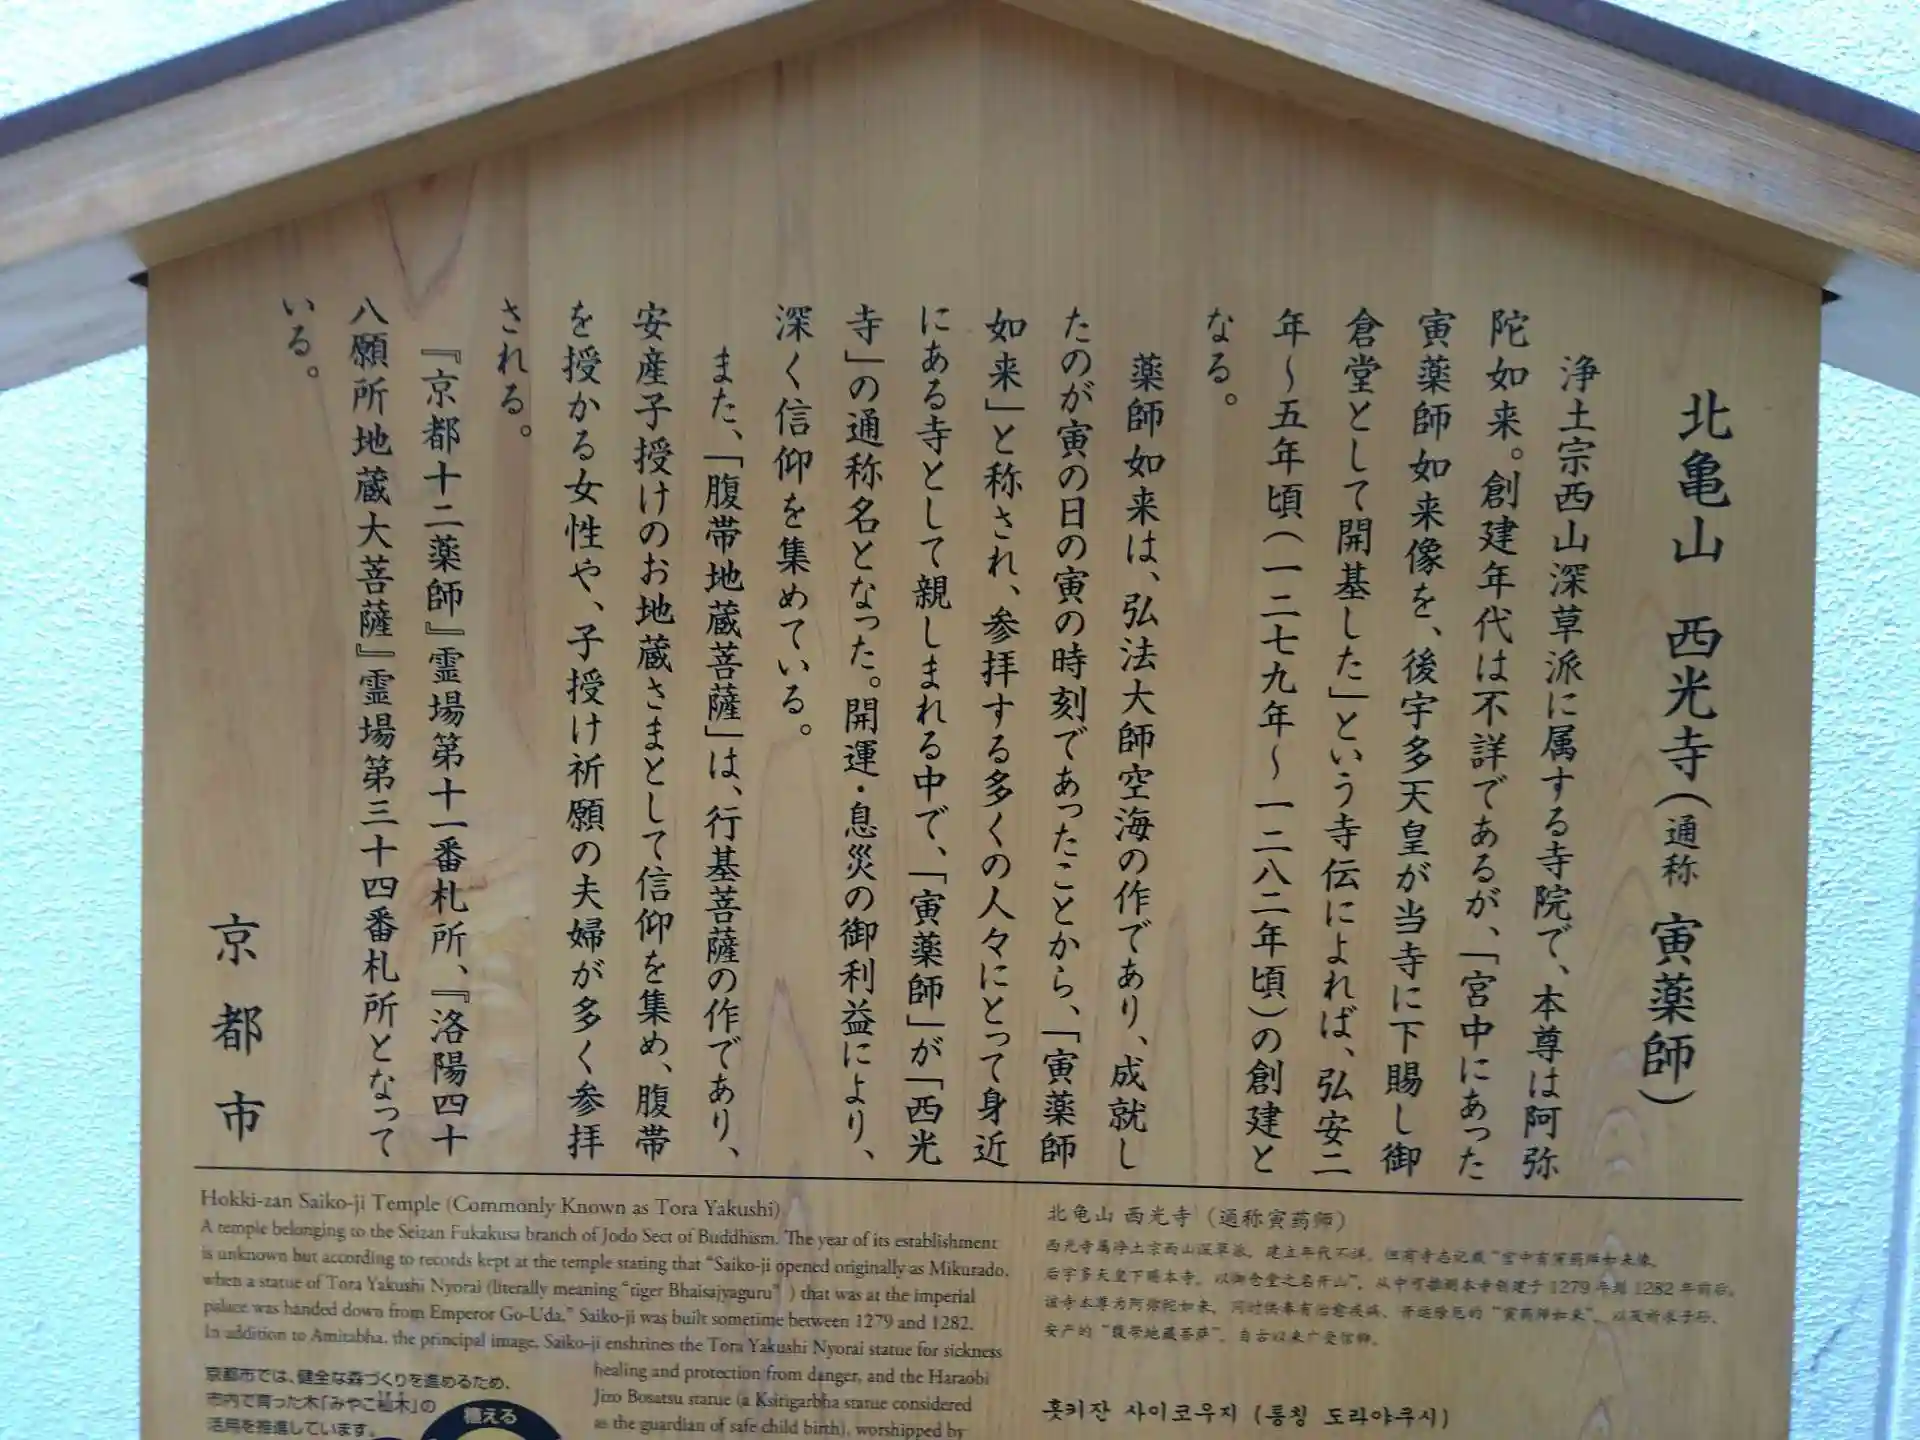 北亀山 西光寺(通称 寅薬師)
浄土宗西山深草派に属する寺院で、本尊は阿弥
陀如来。創建年代は不詳であるが、「宮中にあった
寅薬師如来像を、後宇多天皇が当寺に下賜し御
倉堂として開基した」という寺伝によれば、弘安二
年〜五年頃(一二七九年〜一二八二年頃)の創建と
なる。
薬師如来は、弘法大師空海の作であり、成就し
たのが寅の日の寅の時刻であったことから、「寅薬師
如来」と称され、参拝する多くの人々にとって身近
にある寺として親しまれる中で、「寅薬師」が「西光
寺」の通称名となった。開運・息災の御利益により、
深く信仰を集めている。
また、「腹帯地蔵菩薩」は、行基菩薩の作であり、
安産子授けのお地蔵さまとして信仰を集め、腹帯
を授かる女性や、子授け祈願の夫婦が多く参拝
される。
『京都十二薬師』霊場第十一番札所、『洛陽四十
八願所地蔵大菩薩』霊場第三十四番札所となって
いる。
京都市
Hokki-zan Saiko-ji Temple (Commonly Known as Tora Yakushi)
A temple belonging to the Seizan Fukakusa branch of Jodo Sect of Buddhism. The year of its establishment
is unknown but according to records kept at the temple stating that “Saiko-ji opened originally as Mikurado,
when a statue of Tora Yakushi Nyorai (literally meaning “tiger Bhaisajyaguru” ) that was at the imperial
palace was handed down from Emperor Go-Uda,” Saiko-ji was built sometime between 1279 and 1282.
In addition to Amitabha, the principal image, Saiko-ji enshrines the Tora Yakushi Nyorai statue for sickness
healing and protection from danger, and the Haraobi
Jizo Bosatsu statue (a Ksitigarbha statue considered
as the guardian of safe child birth), worshipped by
京都市では、健全な森づくりを進めるため、
市内で育った木「みやこ杣木」の
活用を推進しています。
植える
北龟山 西光寺 (通称寅药师)
西光寺属净土宗西山深草派，建立年代不详。但有寺志记载“宫中有寅药师如来像，
后宇多天皇下赐本寺，以御仓堂之名开山”，从中可推测本寺创建于 1279 年到 1282 年前后。
该寺本尊为阿弥陀如来，同时供奉有治愈疾病、开运除厄的“寅药师如来”，以及祈求子孙、
安产的“腹带地藏菩萨”，自古以来广受信仰。
홋키잔 사이코우지 (통칭 도라야쿠시)